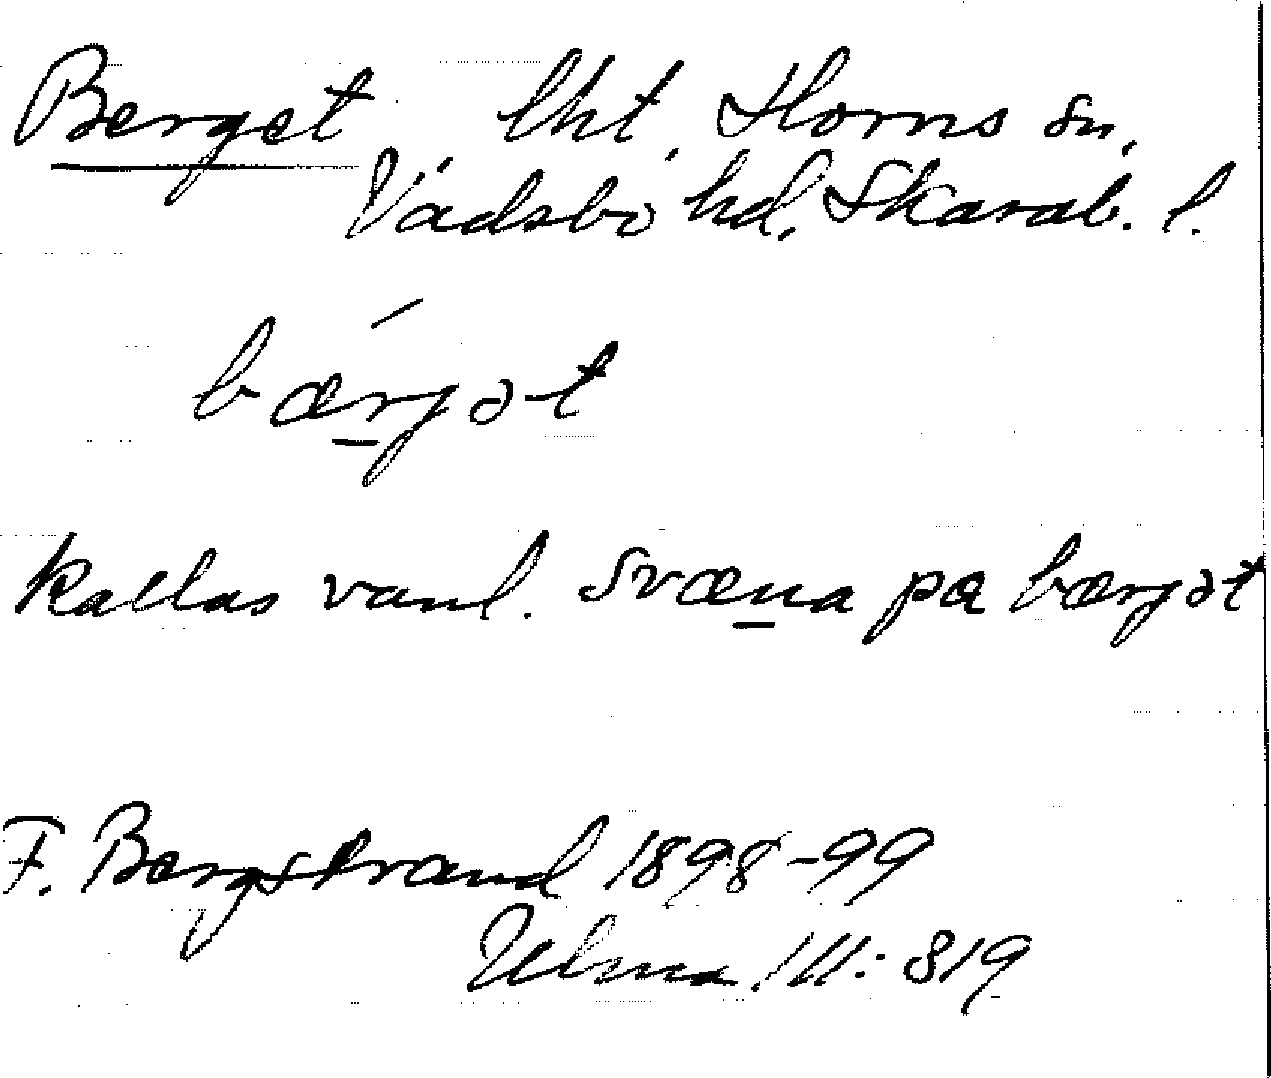 Berget lht, Horns sn,
Vadsbo hd, Skarab. l.
bærjət
kallas vanl. svæna pa bærjət
F. Bergstrand 1898-99
Ulma 111: 819